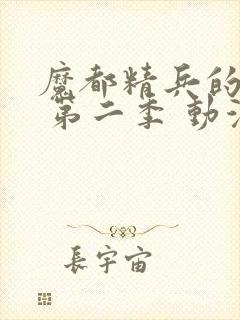 魔都精兵的
第二季 動
長宇宙